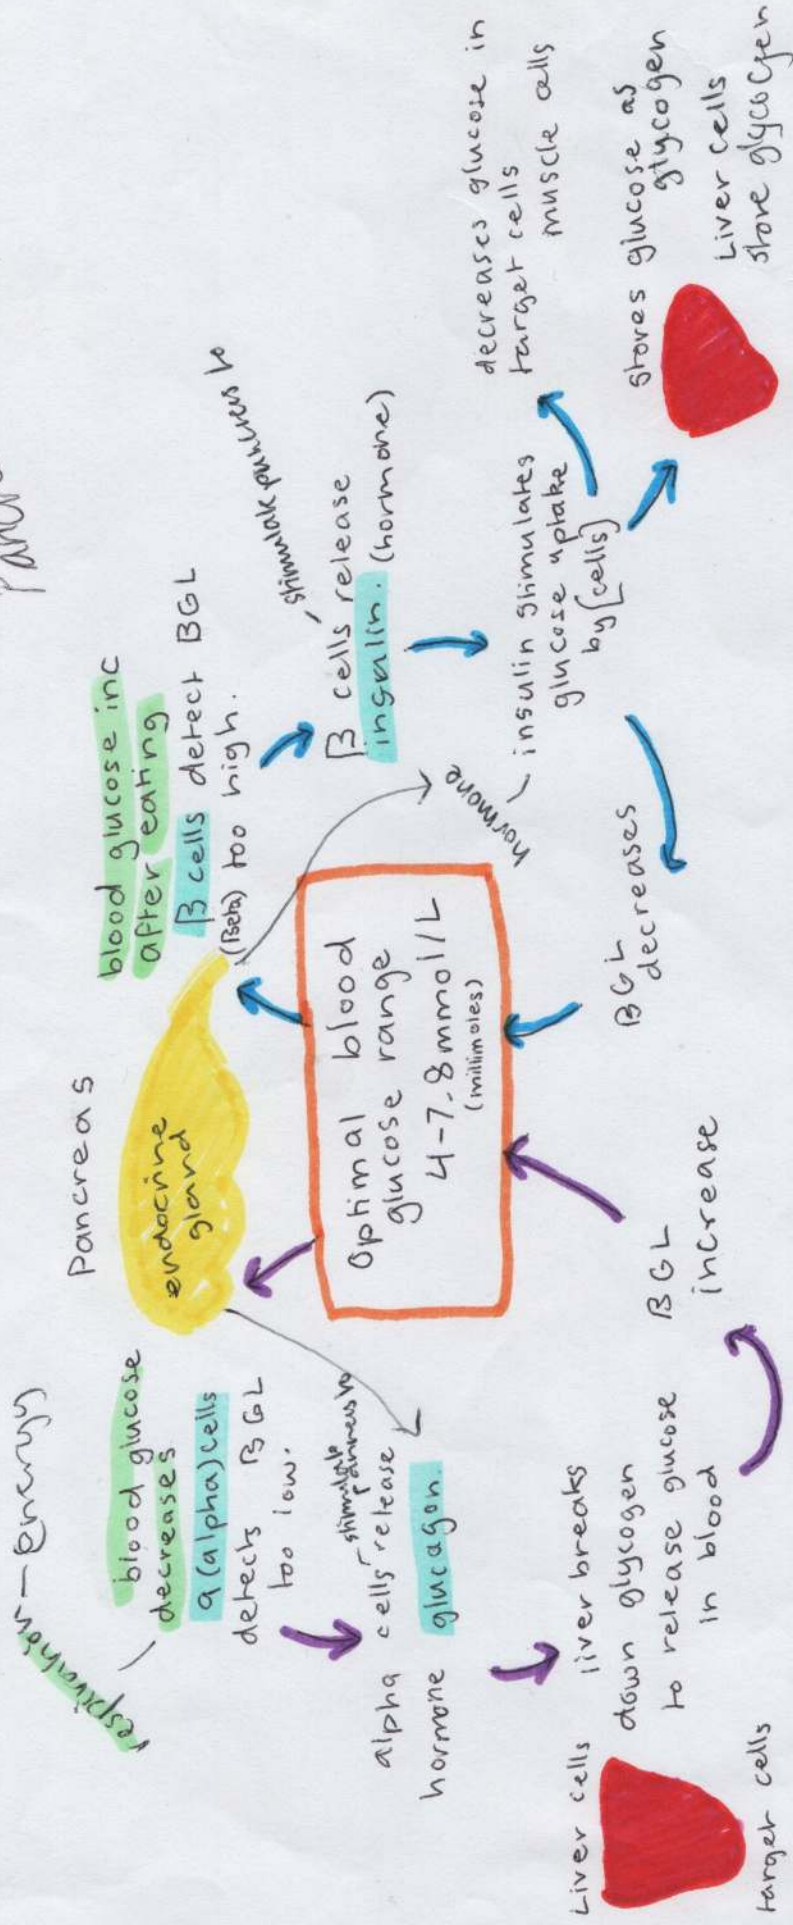 respiration - energy
blood glucose
decreases
α(alpha)cells
detects BGL
too low.
stimulate
pancreas to
alpha cells release
hormone glucagon.
Liver cells
target cells
liver breaks
down glycogen
to release glucose
in blood
BGL
increase
Pancreas
endocrine
gland
Optimal blood
glucose range
4-7.8mmol/L
(millimoles)
blood glucose inc
after eating
β cells detect BGL
(Beta) too high.
stimulate pancreas to
β cells release
insulin. (hormone)
hormone
insulin stimulates
glucose uptake
by [cells]
BGL
decreases
decreases glucose in
target cells
muscle cells
stores glucose as
glycogen
Liver cells
store glycogen